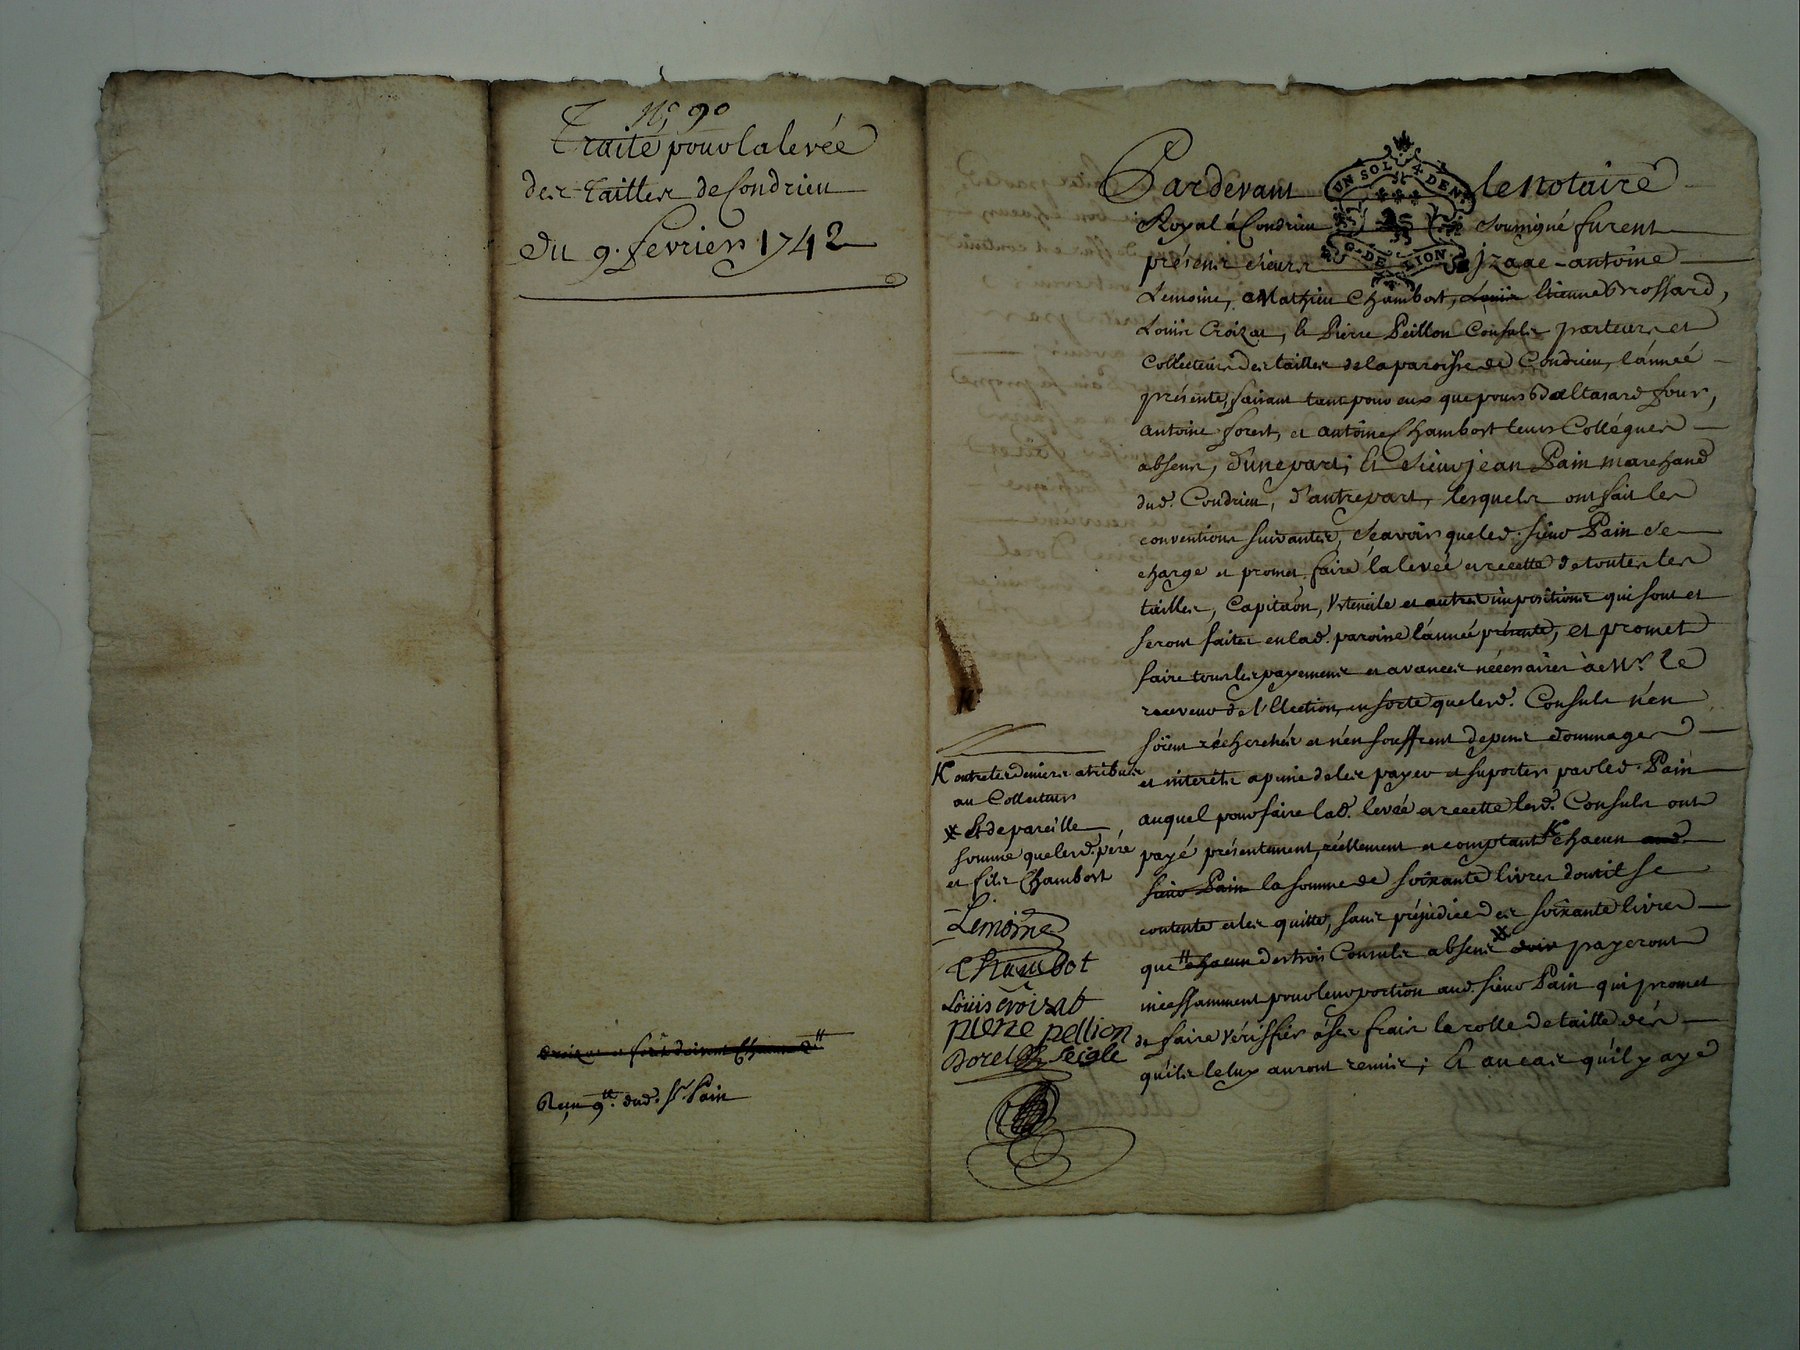 N.º 90
Traité pour la levée
des tailles de Condrieu
du 9. fevrier 1742
Reçu 9.tt dud. Sr. Pain
Pardevant le notaire
UN SOL 4 DEN
G. DE LION
Royal à Condrieu soussigné furent
présens sieurs Izaac-antoine
Lemoine, Mathieu Chambost, Louis Etienne Brossard,
Louis Croizat, & Pierre Peillon Consuls porteurs et
Collecteurs des tailles de la paroisse de Condrieu, l'année
présente, faisant tant pour eux que pour Baltazard four,
antoine forest, et antoine Chambost leurs Collégues
absens, d'une part; Et sieur jean Pain marchand
dud. Condrieu, d'autre part, lesquels ont fait les
conventions suivantes, sçavoir que led. sieur Pain se
charge et promet faire la levée et recette de toutes les
tailles, Capitaon, Ustencile et autres impositions qui sont et
seront faites en lad. paroisse l'année présente, et promet
faire tous les payemens et avances nécessaires à Mr. le
receveur de l'Election, en sorte que lesd. Consuls n'en
soient réchérchés et n'en souffrent depens dommages
et interêts a peine de les payer et suporter par led. Pain
auquel pour faire lad. levée et recette lesd. Consuls ont
payé présentement, réellement et comptant K chacun aud.
sieur Pain la somme de soixante livres dont il se
contente et les quitte, sans préjudice des soixante livres
que chacun des trois Consuls absens doit payeront
incessamment pour leur portion aud. sieur Pain qui promet
de faire vériffier à ses frais le rolle de taille dés
qu'ils le luy auront remis; Et au cas qu'il y aye
K outre les deniers atribués
au Collecteurs
Et de pareille
somme que lesd. péré
et fils Chambost
Lemoine
Chambot
Louis Croizat
piere pellion
Borel